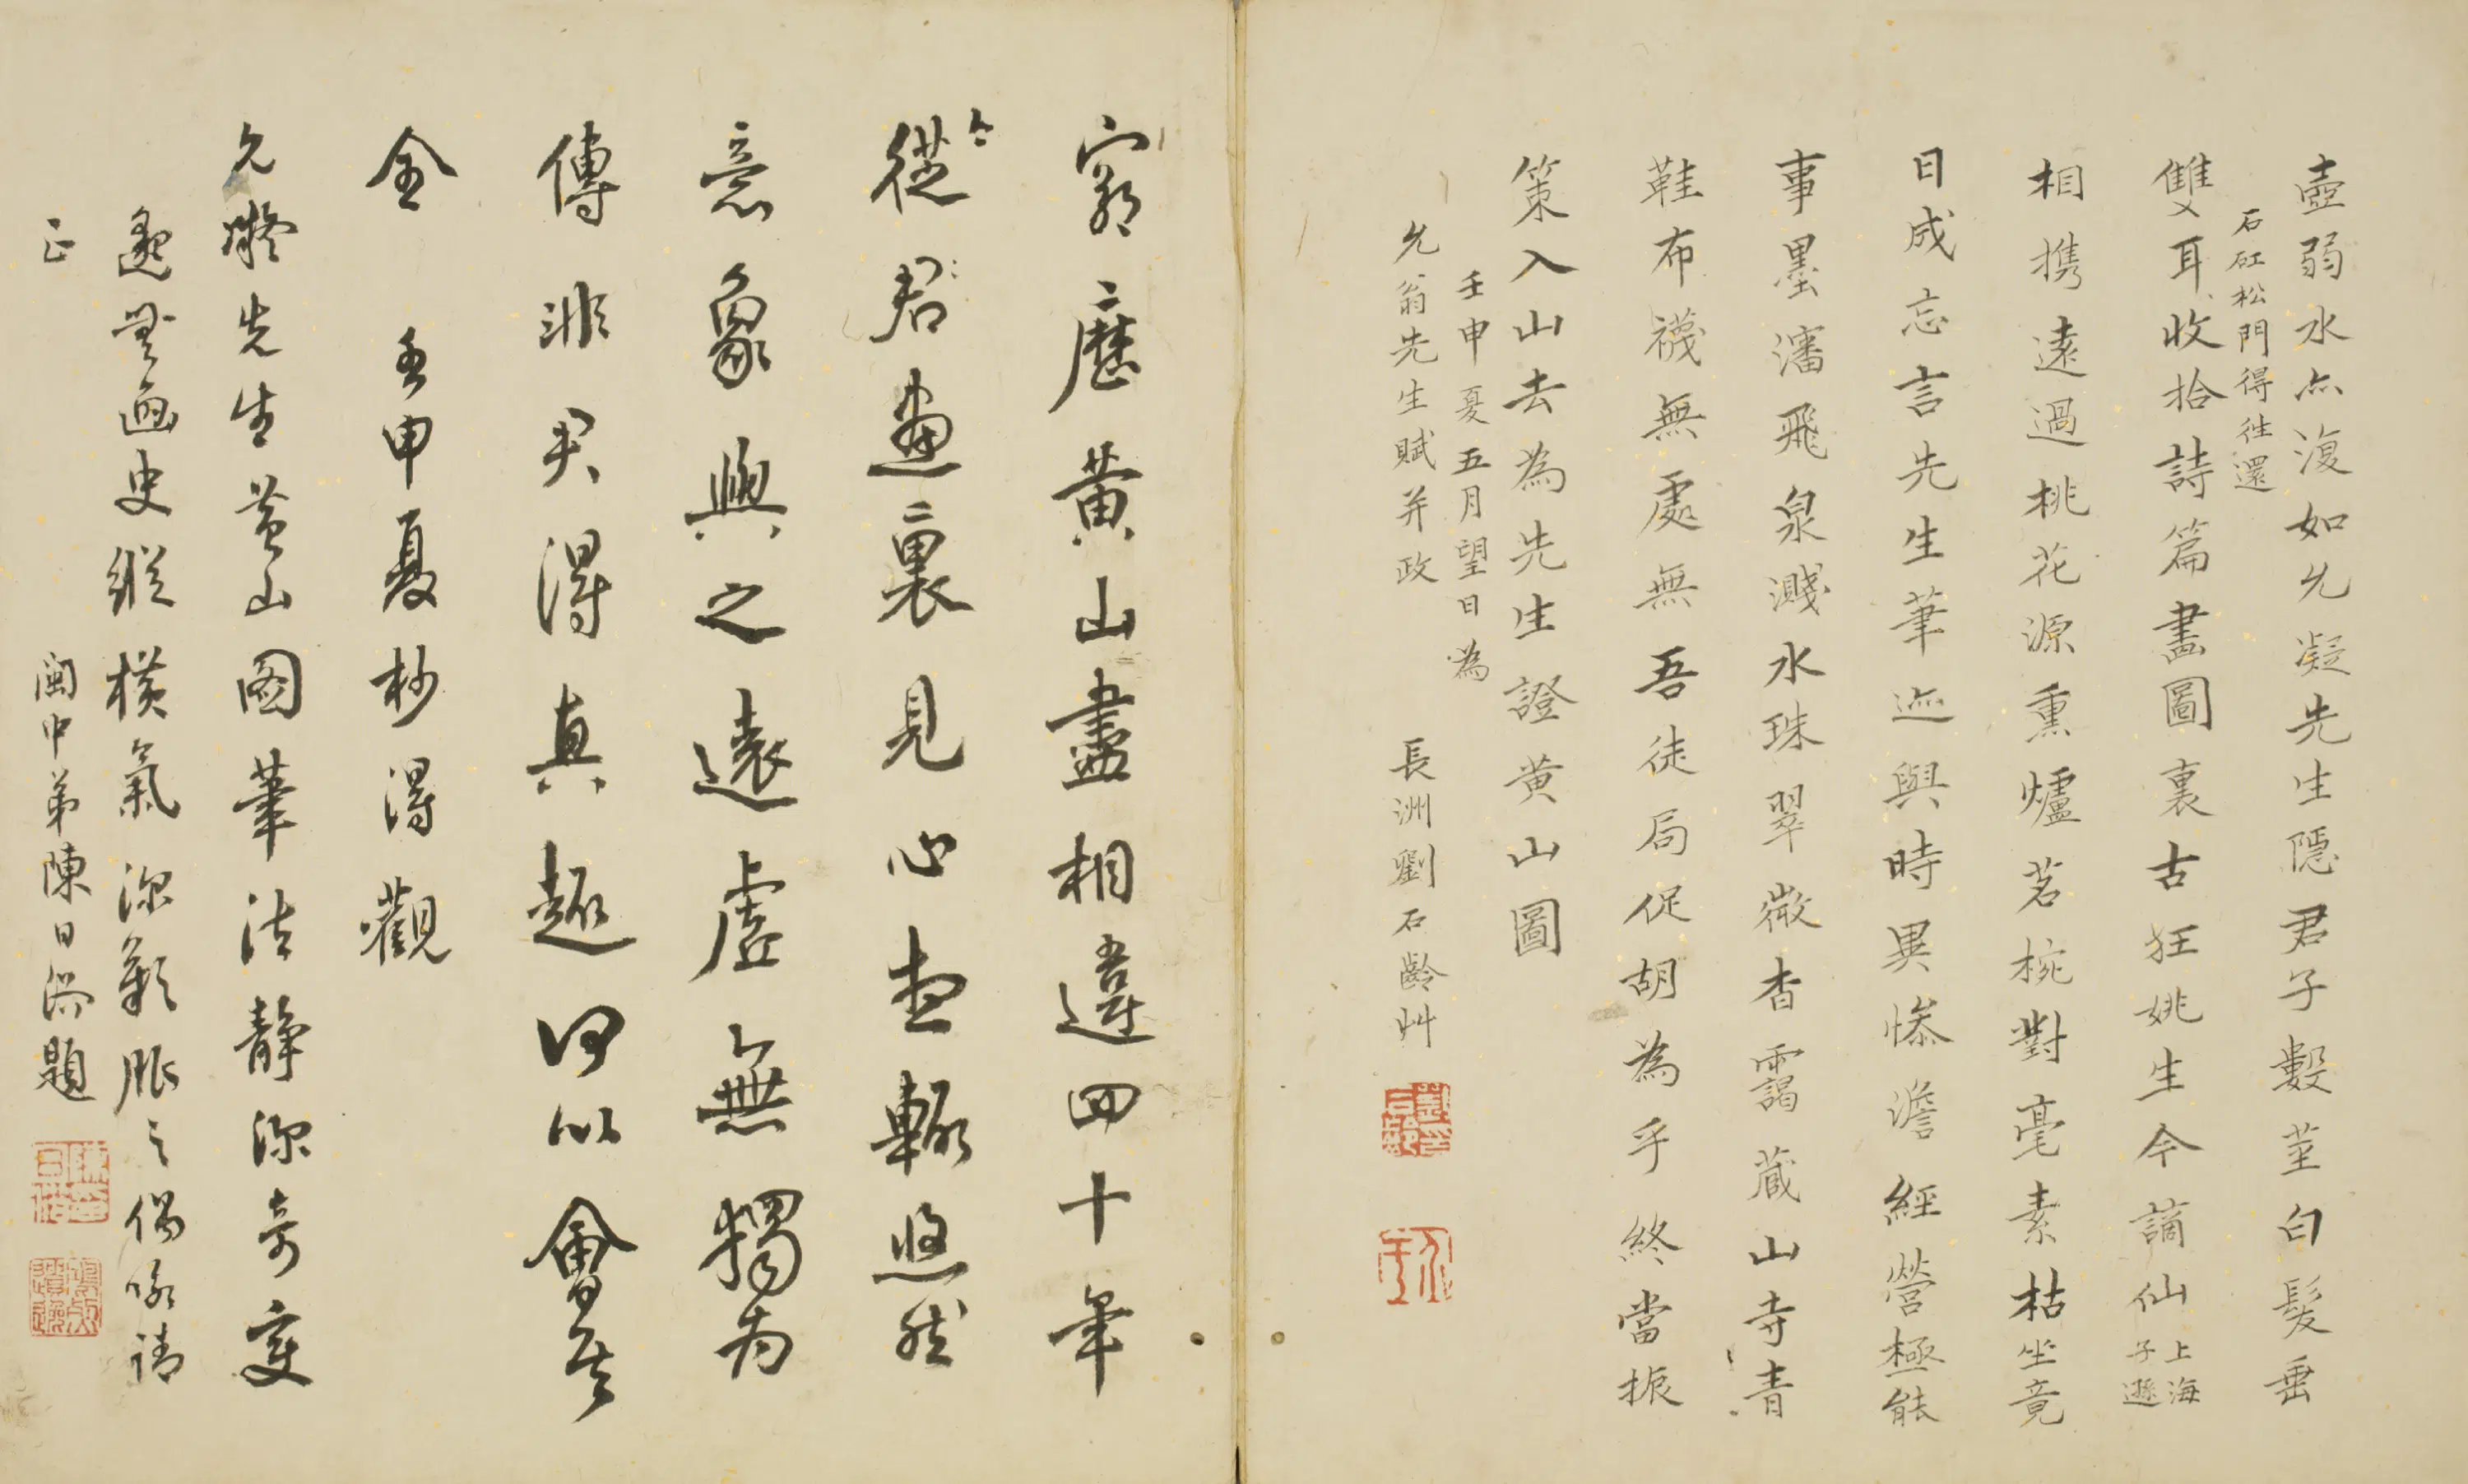 壺弱水亦復如允凝先生隱君子數莖白髮垂
石矼松門得往還
雙耳收拾詩篇畫圖裏古狂姚生今謫仙
上海
子遜
相携遠過桃花源熏爐茗椀對毫素枯坐竟
日成忘言先生筆迹與時異慘澹經營極能
事墨瀋飛泉濺水珠翠微杳靄藏山寺青
鞋布襪無處無吾徒局促胡為乎終當振
策入山去為先生證黃山圖
壬申夏五月望日為
允翁先生賦并政
長洲劉石齡艸
窮歷黃山盡相違四十年
今
從君畫裏見心杳輒悠然
意象與之遠虛無獨為
傳非君得真趣何以會其
全 壬申夏杪得觀
允凝先生黃山圖筆法靜深奇変
邈無畫史縱橫氣深歎服之偶咏請
正
閩中弟陳日浴題